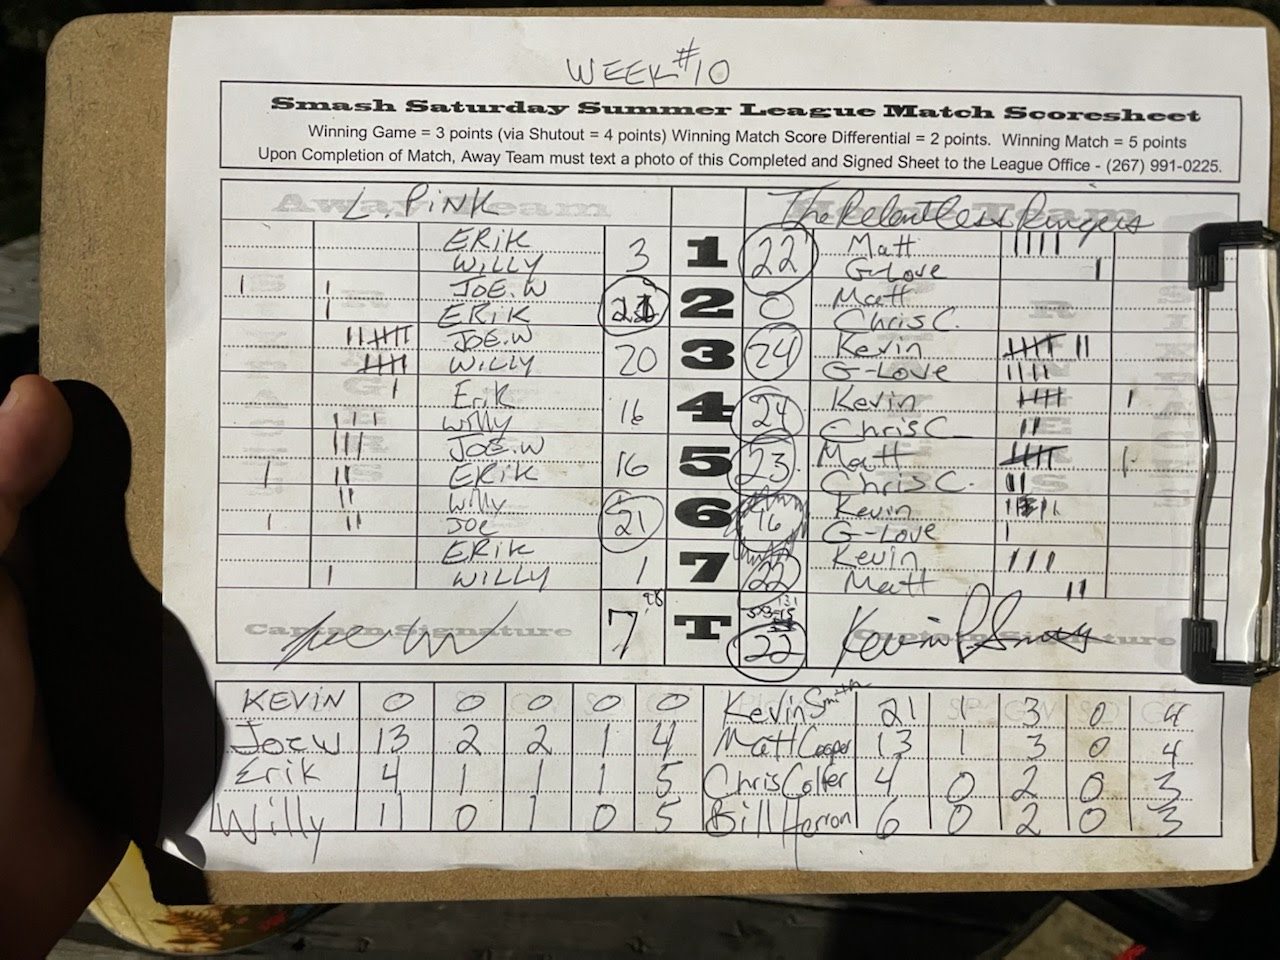 WEEK #10
Smash Saturday Summer League Match Scoresheet
Winning Game = 3 points (via Shutout = 4 points) Winning Match Score Differential = 2 points. Winning Match = 5 points
Upon Completion of Match, Away Team must text a photo of this Completed and Signed Sheet to the League Office - (267) 991-0225.
Away Team L. PINK The Relentless Ringers
ERIK Matt
WILLY 3 1 22 G-Love
JOE.W Matt
ERIK 21 2 0 Chris C.
JOE.W Kevin
WILLY 20 3 24 G-Love
Erik Kevin
Willy 16 4 24 Chris C
JOE.W Matt
ERIK 16 5 23 Chris C.
Willy Kevin
JOE 21 6 16 G-Love
ERIK Kevin
WILLY 1 7 22 Matt
98 131
Captain Signature 7 T 22 Kevin P. Smith
KEVIN 0 0 0 0 0 Kevin Smith 21 1 3 0 4
Joe W 13 2 2 1 4 Matt Cooper 13 1 3 0 4
Erik 4 1 1 1 5 Chris Colfer 4 0 2 0 3
Willy 11 0 1 0 5 Bill Herron 6 0 2 0 3